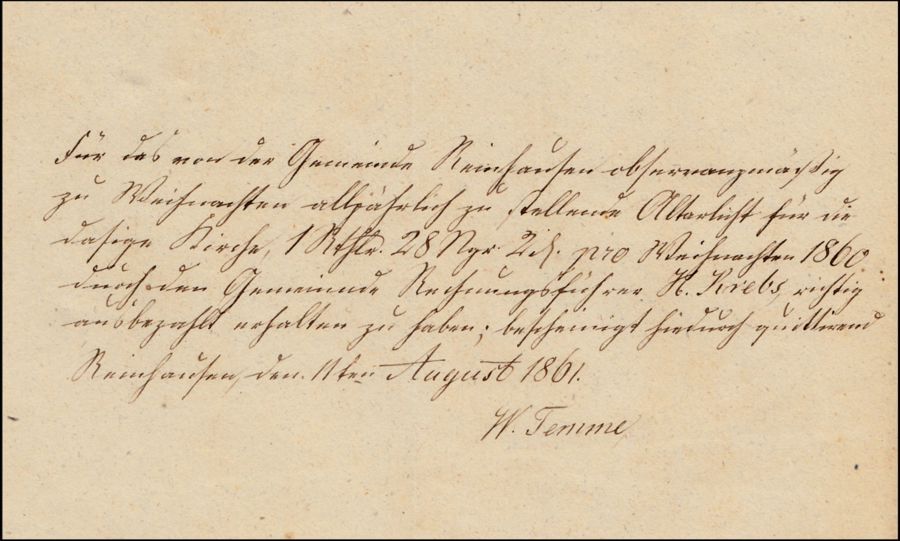 Für das von der Gemeinde Reinhausen observanzmäßig
zu Weihnachten alljährlich zu stellende Altarlicht für die
dasige Kirche, 1 Rthlr. 28 Ngr. 2 d. pro Weihnachten 1860
durch den Gemeinde Rechnungsführer H. Krebs, richtig
ausbezahlt erhalten zu haben; bescheinigt hiedurch quittirend
Reinhausen, den 11ten August 1861.
W. Temme